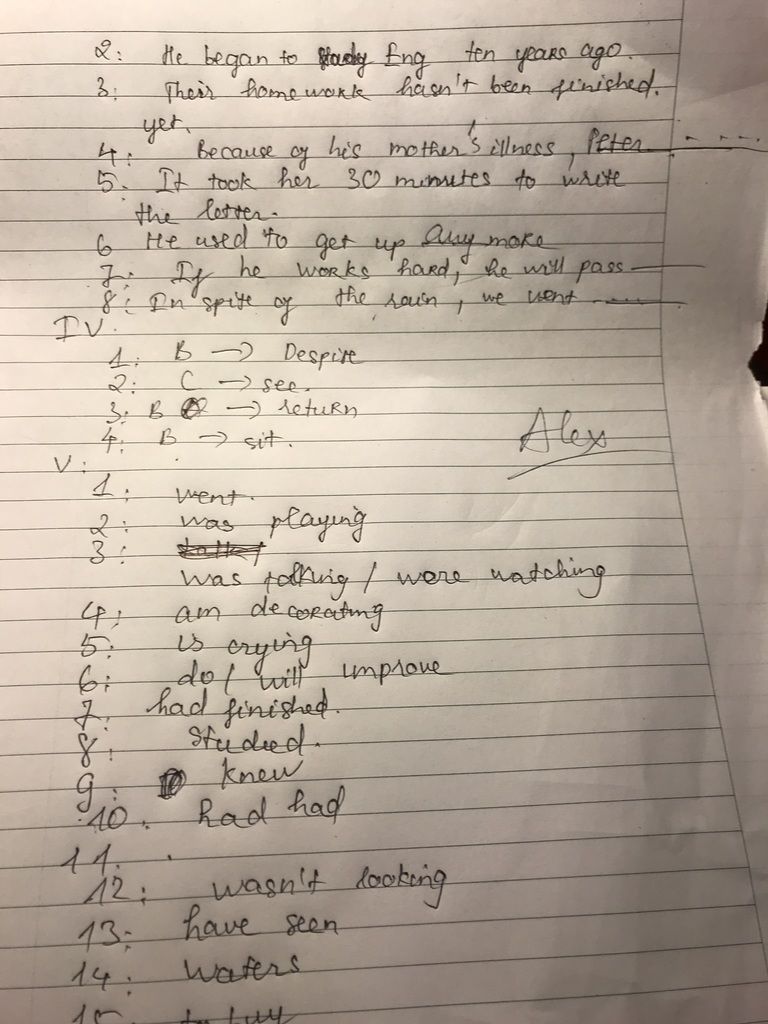 2: He began to study Eng ten years ago.
3: Their homework hasn't been finished.
yet.
4: Because of his mother's illness, Peter
5. It took her 30 minutes to write
the letter.
6 He used to get up any more
7: If he works hard, he will pass
8: In spite of the rain, we went
IV.
1: B → Despite
2: C → see.
3: B → return
4: B → sit.
Alex
V:
1: went.
2: was playing
3:
was talking / were watching
4: am decorating
5: is crying
6: do / will improve
7: had finished.
8: studied.
9: knew
10. had had
11.
12: wasn't looking
13: have seen
14: waters
15. to buy